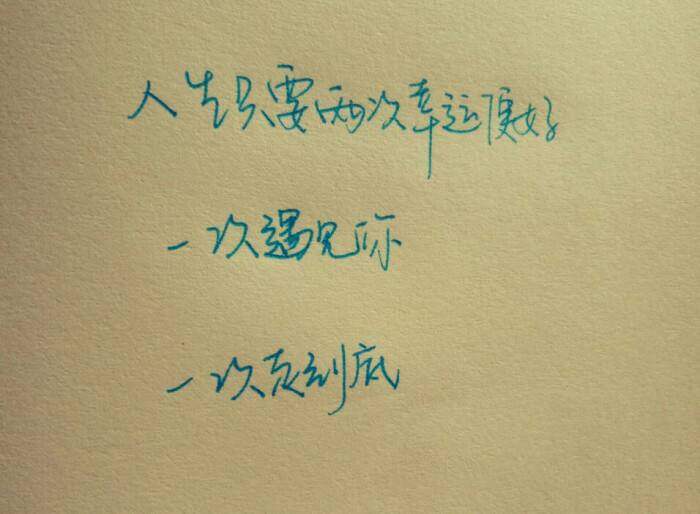 人生只要两次幸运便好
一次遇见你
一次走到底